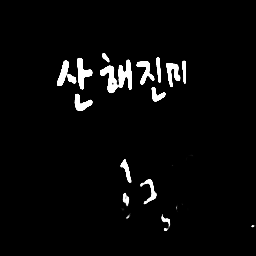 산해진미